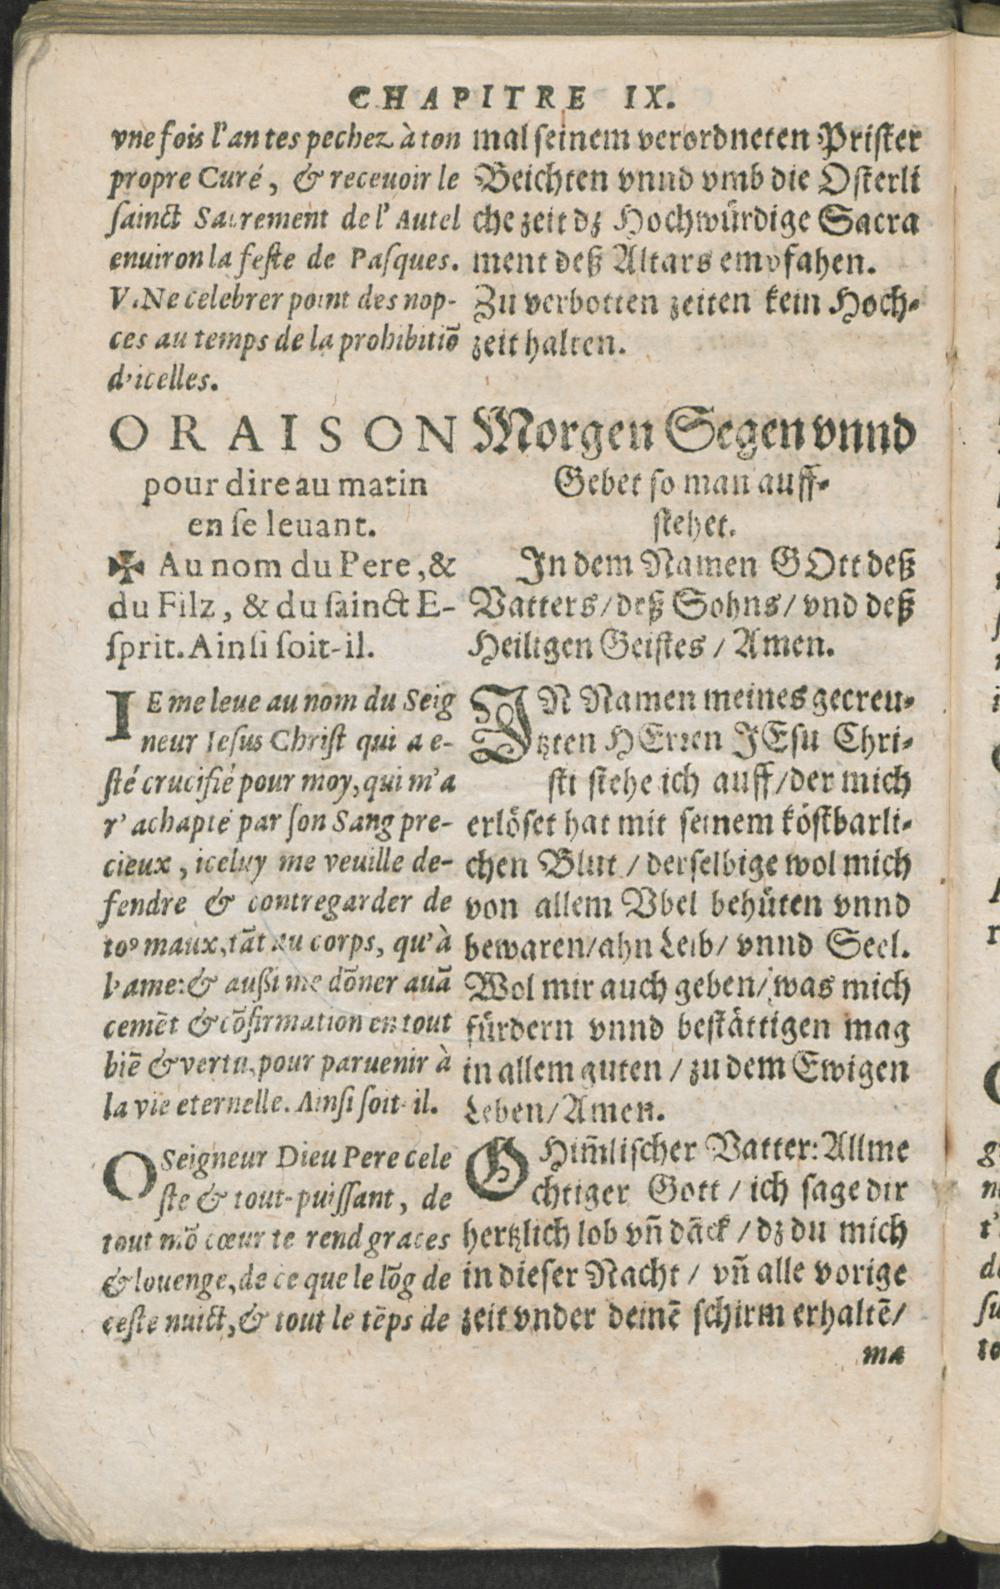 CHAPITRE IX.
vne fois l'an tes pechez à ton
propre Curé, & receuoir le
sainct Sacrement de l'Autel
enuiron la feste de Pasques.
V. Ne celebrer point des nop-
ces au temps de la prohibitiō
d'icelles.
ORAISON
pour dire au matin
en se leuant.
✠ Au nom du Pere, &
du Filz, & du sainct E-
sprit. Ainsi soit-il.
IE me leue au nom du Seig
neur Iesus Christ qui a e-
sté crucifié pour moy, qui m'a
r'achapté par son Sang pre-
cieux, iceluy me veuille de-
fendre & contregarder de
toꝰ maux, tāt au corps, qu'à
l'ame: & aussi me dōner auā
cemēt & cōfirmation en tout
biē & vertu, pour paruenir à
la vie eternelle. Ainsi soit-il.
O Seigneur Dieu Pere cele
ste & tout-puissant, de
tout mō cœur te rend graces
& louenge, de ce que le lōg de
ceste nuict, & tout le tēps de
mal seinem verordneten Prister
Beichten vnnd vmb die Osterli
che zeit dz Hochwürdige Sacra
ment deß Altars empfahen.
Zu verbotten zeiten kein Hoch-
zeit halten.
Morgen Segen vnnd
Gebet so man auff-
stehet.
In dem Namen GOtt deß
Vatters/deß Sohns/vnd deß
Heiligen Geistes/Amen.
IN Namen meines gecreu-
tzten HErren JEsu Chri-
sti stehe ich auff/der mich
erlöset hat mit seinem köstbarli-
chen Blut/derselbige wol mich
von allem Vbel behüten vnnd
bewaren/ahn Leib/vnnd Seel.
Wol mir auch geben/was mich
fürdern vnnd bestättigen mag
in allem guten/zu dem Ewigen
Leben/Amen.
O Him̄lischer Vatter: Allme
chtiger Gott/ich sage dir
hertzlich lob vn̄ dāck/dz du mich
in dieser Nacht/vn̄ alle vorige
zeit vnder deinē schirm erhaltē/
ma